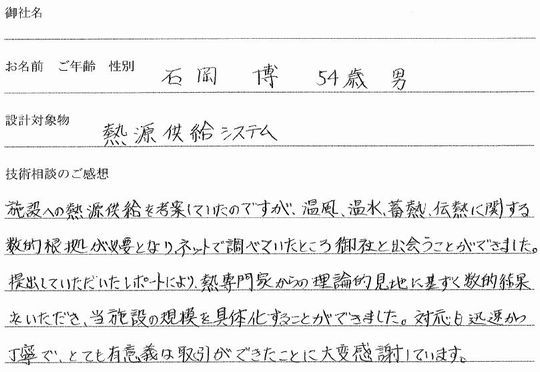 御社名
お名前 ご年齢 性別 石岡 博 54歳 男
設計対象物 熱源供給システム
技術相談のご感想
施設への熱源供給を考案していたのですが、温風、温水、蓄熱、伝熱に関する
数的根拠が必要となり、ネットで調べていたところ御社と出会うことができました。
提出していただいたレポートにより、熱専門家からの理論的見地に基ずく数的結果
をいただき、当施設の規模を具体化することができました。対応も迅速かつ
丁寧で、とても有意義は取引ができたことに大変感謝しています。